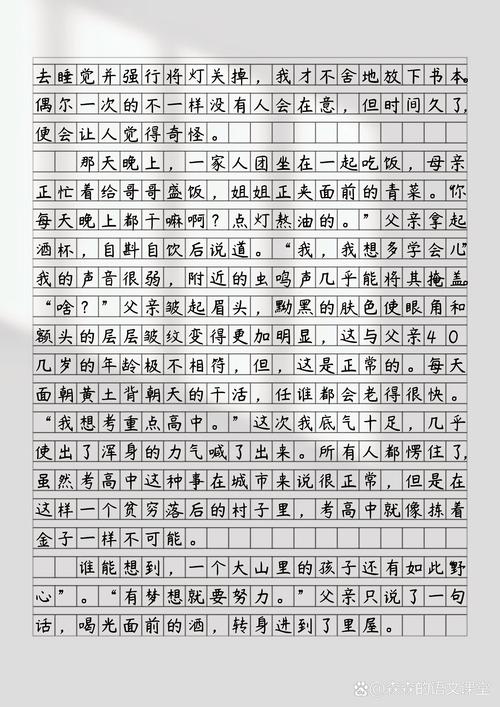 去睡觉并强行将灯关掉，我才不舍地放下书本。
偶尔一次的不一样没有人会在意，但时间久了，
便会让人觉得奇怪。
那天晚上，一家人团坐在一起吃饭，母亲
正忙着给哥哥盛饭，姐姐正夹面前的青菜。“你
每天晚上都干嘛啊？点灯熬油的。”父亲拿起
酒杯，自斟自饮后说道。“我，我想多学会儿”
我的声音很弱，附近的虫鸣声几乎能将其掩盖。
“啥？”父亲皱起眉头，黝黑的肤色使眼角和
额头的层层皱纹变得更加明显，这与父亲40
几岁的年龄极不相符，但，这是正常的。每天
面朝黄土背朝天的干活，任谁都会老得很快。
“我想考重点高中。”这次我底气十足，几乎
使出了浑身的力气喊了出来。所有人都愣住了，
虽然考高中这种事在城市来说很正常，但是在
这样一个贫穷落后的村子里，考高中就像拣着
金子一样不可能。
谁能想到，一个大山里的孩子还有如此野
心”。“有梦想就要努力。”父亲只说了一句
话，喝光面前的酒，转身进到了里屋。
森森的语文课堂